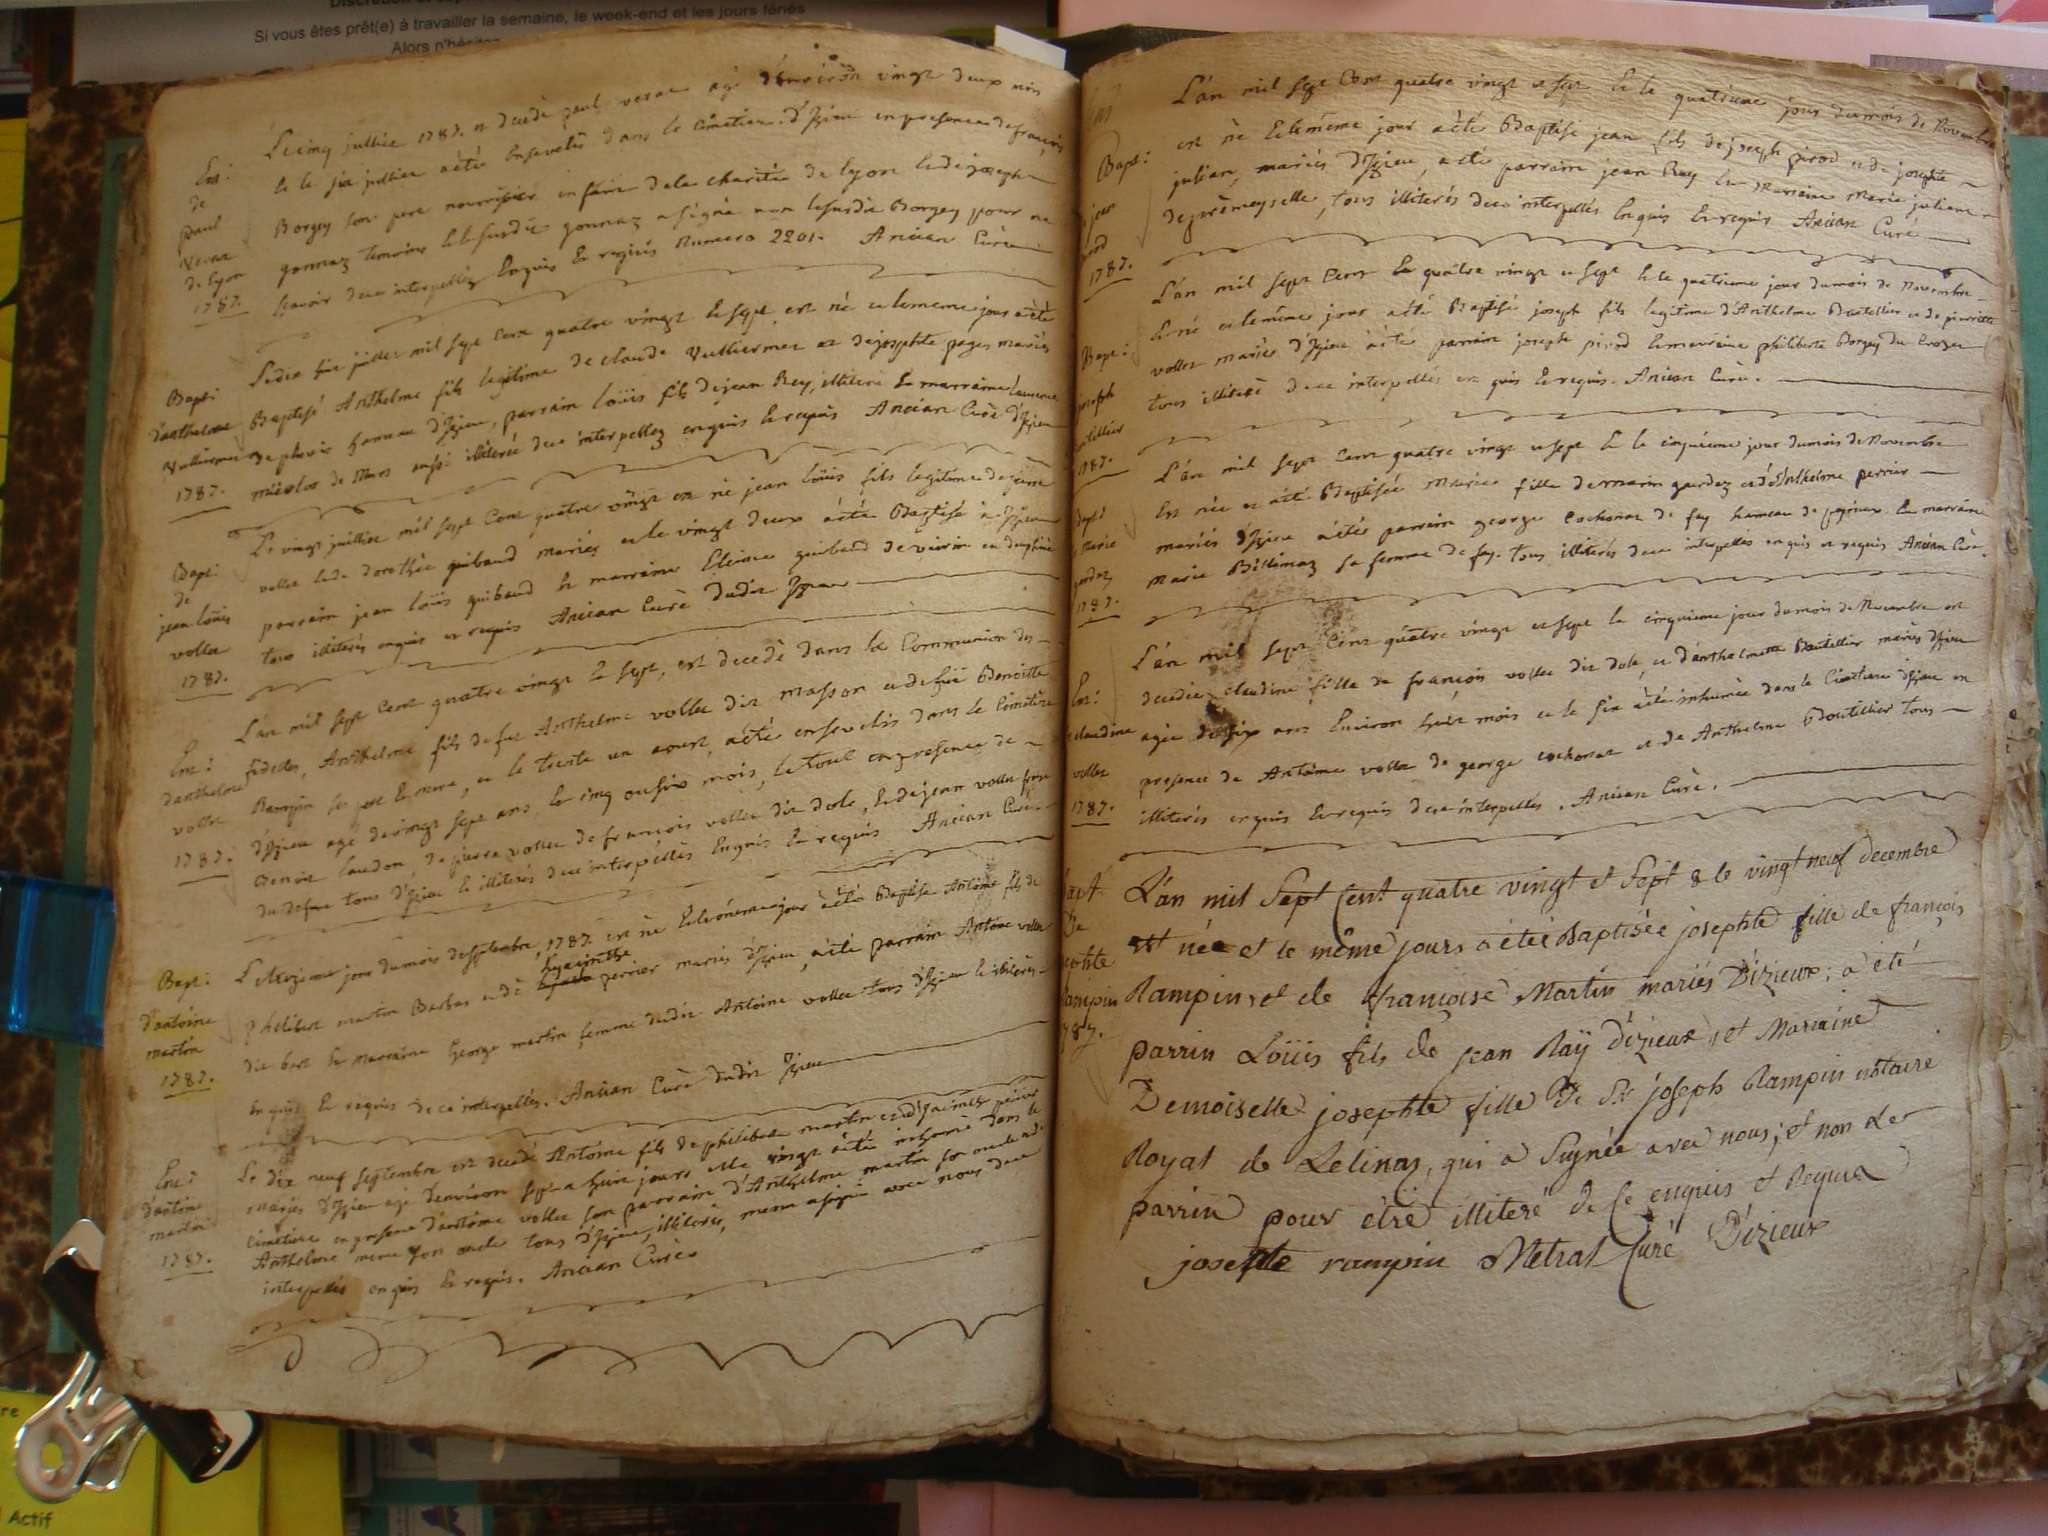 Si vous êtes prêt(e) à travailler la semaine, le week-end et les jours fériés
Alors n'hésitez
Le cinq juillie 1787. est décédé paul verac agé d'environ vingt deux mois
Ent:
de
paul
verac
de lyon
1787.
et le six juillier a été Ensevelis dans le Cimetiere d'Izieu en presence de françois
Borgey son pere nourrisier enfant de la charité de lyon et de joseph
gonnaz temoins et le susdit gonnaz a signé non le susdit Borgey pour ne
scavoir de ce interpellés Enquis Et requis Numero 2201. Ancian Curé
Bapt:
d'anthelme
Vulliermet
1787.
Le dix huit juillet mil sept Cent quatre vingt et sept est né et le meme jour a été
Baptisé Anthelme fils legitime de claude Vulliermet et de josephte pages mariés
hameau d'Izieu, parrain loüis fils de jean Rey, illiteré Et marraine
de Murs aussi illiterée de ce interpellez enquis Et requis Ancian Curé d'Izieu
Bapt:
de
jean loüis
vollet
1787.
Le vingt juillier mil sept Cent quatre vingt est né jean loüis fils legitime de
vollet et de dorothée guibaud mariés et le vingt deux a été Baptisé
parrain jean loüis guibaud et marraine guibaud de en dauphiné
tous illiterés enquis et requis Ancian Curé dudit Izieu
Ent:
d'anthelme
vollet
1787.
L'an mil sept Cent quatre vingt Et sept, est décédé dans la Communion des
fidelles, Anthelme fils de feu Anthelme vollet dit masson et de Benoitte
Rampin ses pere Et mere, et le trente un aoust, a été ensevelis dans le Cimetière
d'Izieu agé de vingt sept ans, Et cinq ou six mois, le tout en presence de
Benoit laudon, de pierre vollet de francois vollet dit dole, Et de jean vollet frere
du defunt tous d'Izieu Et illiterés de ce interpellés Enquis Et requis Ancian Curé
Bapt:
d'antoine
martin
1787.
Le treizieme jour du mois de septembre, 1787. est né Et le même jour a été Baptisé Antoine fils de
hyacinthe
philibert martin Barbas et de perrier mariés d'Izieu, a été parrain Antoine vollet
dit bert Et Marraine George martin femme dudit Antoine vollet tous d'Izieu Et illiterés
Enquis Et requis de ce interpellés. Ancian Curé dudit Izieu
Ent:
d'antoine
martin
1787.
Le dix neuf septembre est decedé Antoine fils de philibert martin et d'hacinthe perier
mariés d'Izieu agé d'environ sept a huit jours et le vingt a été inhumé dans le
cimetiere en presence d'antoine vollet son parrain d'Anthelme martin son oncle et de
Anthelme meme son oncle tous d'Izieu, illiterés, meme a signé avec nous de ce
interpellés enquis Et requis. Ancian Curé
L'an mil sept Cent quatre vingt et sept Et le quatrieme jour du mois de Novembre
Bapt:
jean
pirod
1787.
est né Et le meme jour a été Baptisé jean fils de joseph pirod et de josephte
julian, mariés d'Izieu, a été parrain jean Rey Et Marraine Marie juliane
de prémeyselle, tous illiterés de ce interpellés Enquis Et requis Ancian Curé
Bapt:
joseph
1787.
L'an mil sept Cent Et quatre vingt et sept Et le quatrieme jour du mois de Novembre
Et né et le même jour a été Baptisé joseph fils legitime d'Anthelme Boutellier et de pierrette
vollet mariés d'Izieu a été parrain joseph pirod Et marraine philiberte Borgey du
tous illiteré de ce interpellés en quis Et requis. Ancian Curé.
Bapt:
Marie
gardaz
1787.
L'an mil sept Cent quatre vingt et sept Et le cinquieme jour du mois de Novembre
Est née et a été Baptisée Marie fille de marin gardaz et d'Anthelme perrier
mariés d'Izieu a étés parrain george Cochonat de fay hameau de peyrieux. Et marraine
Marie Billimaz sa femme de fay. tous illiterés de ce interpellés en quis et requis Ancian Curé.
Ent:
claudine
vollet
1787.
L'an mil sept Cent quatre vingt et sept le cinquieme jour du mois de Novembre est
decedée claudine fille de françois vollet dit dole, et d'anthelmette Boutellier mariés d'Izieu
agée de six ans Environ huit mois et le six a été inhumée dans le Cimetiere d'Izieu en
presence de Antoine vollet de george cochonat et de Anthelme Boutillier tous
illiterés enquis Et requis de ce interpellés. Ancian Curé.
bapt
De
josephte
rampin
1787.
L'an mil Sept Cent quatre vingt et Sept & le vingt neuf decembre
est née et le même jours a étée Baptisée josephte fille de françois
Rampin, et de françoise Martin mariés D'izieux; a eté
parrin Loüis fils de jean Raÿ D'izieux, et Maraine
Demoiselle josephte fille De Sr joseph Rampin notaire
Royal de Lelinaz, qui a Signée avec nous; et non Le
parrin pour etre illiteré de Ce enquis et Requis
josephte rampin Métral Curé D'izieux
Actif